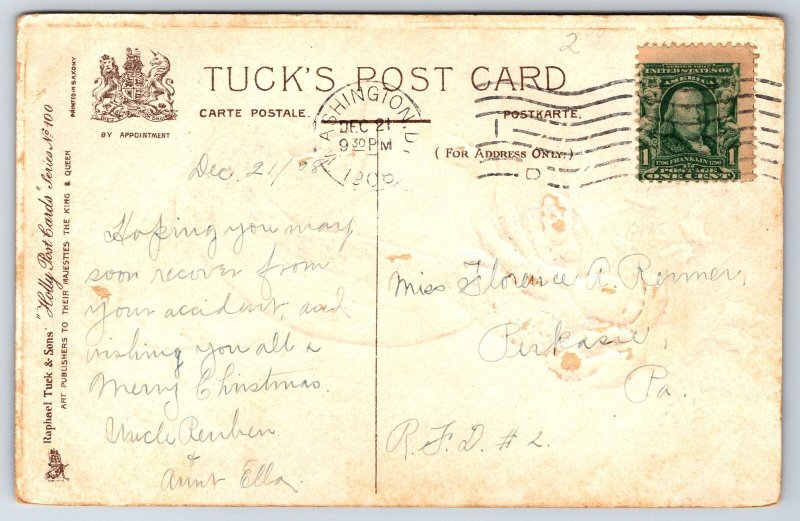 PRINTED IN SAXONY
BY APPOINTMENT
TUCK'S POST CARD
CARTE POSTALE.
POSTKARTE.
( FOR ADDRESS ONLY.)
Raphael Tuck & Sons' "Holly Post Cards" Series Nº 100
ART PUBLISHERS TO THEIR MAJESTIES THE KING & QUEEN
WASHINGTON, D.
DEC 21
9 30 PM
1908
D
UNITED STATES OF
AMERICA
1 FRANKLIN 1
POSTAGE
ONE CENT
2
Dec, 21/08
Hoping you may
soon recover from
your accident, and
wishing you all a
Merry Christmas.
Uncle Reuben
&
Aunt Ella.
Miss Florence A. Renner,
Perkasie,
Pa.
R.F.D. # 2.